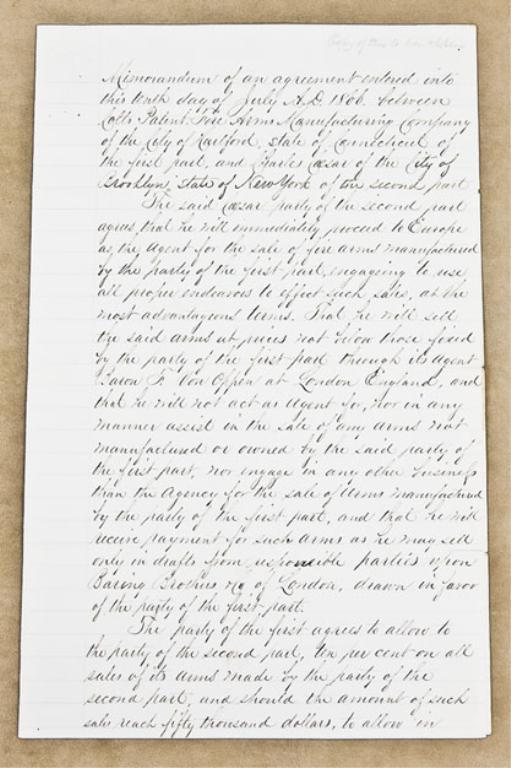 Copy of this to Von Oppen
Memorandum of an agreement entered into
this tenth day of July A.D. 1866. between
Colts Patent Fire Arms Manufacturing Company
of the City of Hartford, state of Connecticut of
the first part, and Charles Cæsar of the City of
Brooklyn, State of New York of the second part
The said Cæsar party of the second part
agrees, that he will immediately proceed to Europe
as the Agent for the sale of fire arms manufactured
by the party of the first part, engageing to use
all proper endeavors to effect such sales, at the
most advantagious terms. That he will sell
the said arms at prices not below those fixed
by the party of the first part through its agent
Baron F. Von Oppen at London England, and
that he will not act as Agent for, nor in any
manner assist in the sale of any arms not
manufactured or owned by the said party of
the first part, nor engage in any other business
than the Agency for the sale of Arms manufactured
by the party of the first part, and that he will
receive payment for such arms as he may sell
only in drafts from responsible parties upon
Baring Brothers &c of London, drawn in favor
of the party of the first part.
The party of the first agrees to allow to
the party of the second part, ten per cent on all
sales of its arms made by the party of the
second part, and should the amount of such
sales reach fifty thousand dollars, to allow in